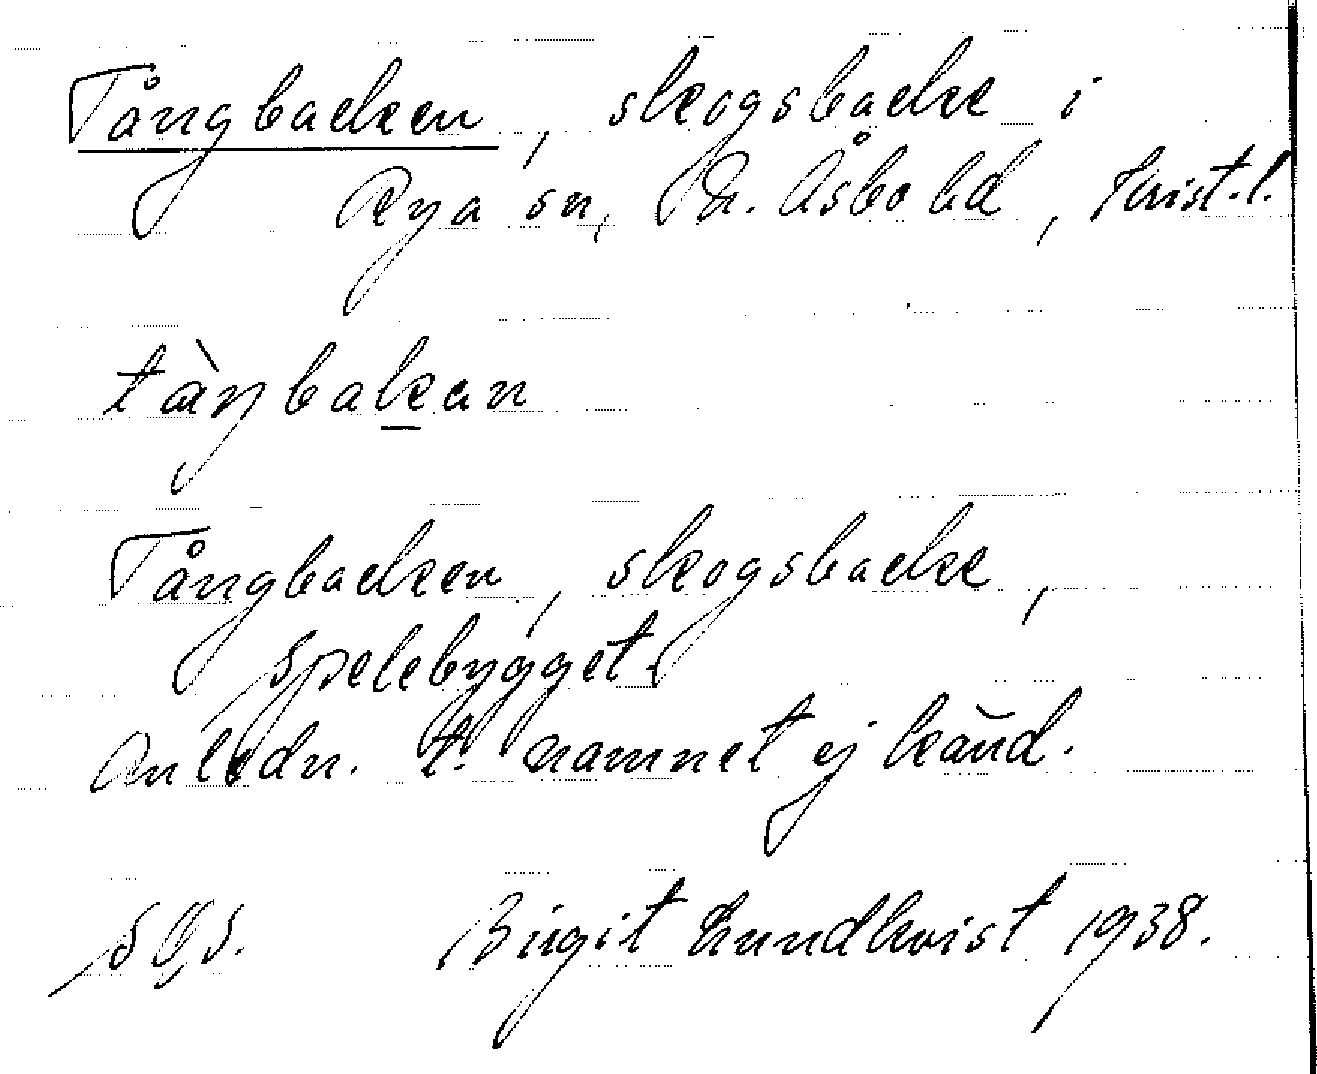 Tångbacken, skogsbacke i
Rya sn, N. Åsbo hd, Krist.l.
tàŋbakan
Tångbacken, skogsbacke,
Spelebygget.
Anledn. t. namnet ej känd.
Birgit Lundkvist 1938.